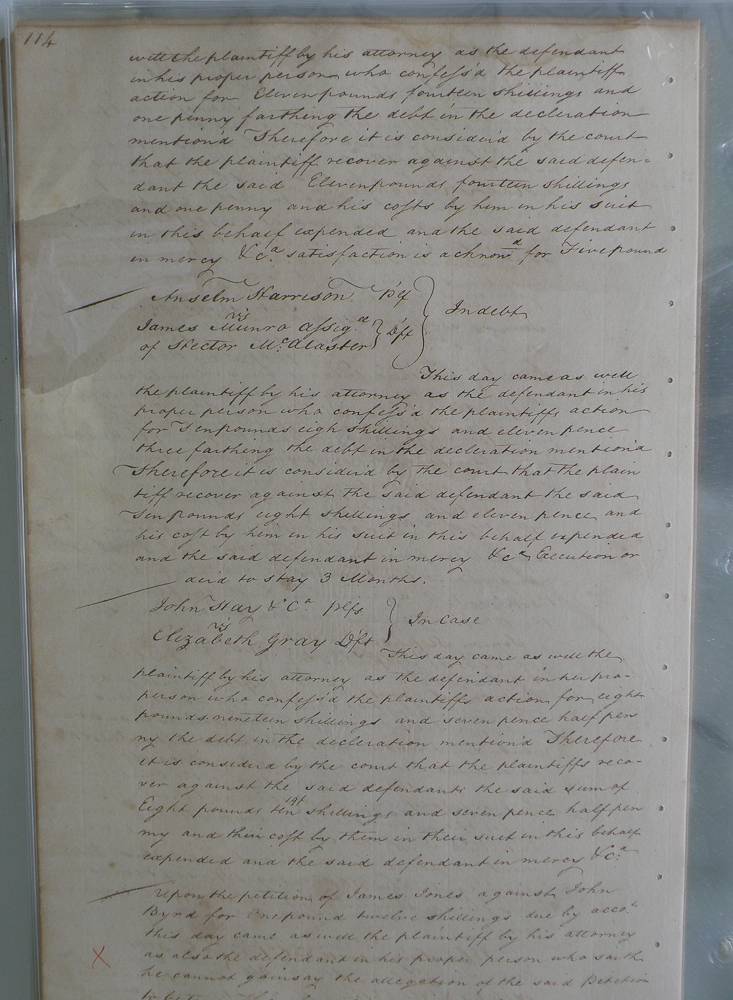 114
with the plaintiff by his attorney as the defendant
in his proper person who confess'd the plaintiff
action for Eleven pounds fourteen shillings and
one penny farthing the debt in the declaration
mention'd Therefore it is consider'd by the court
that the plaintiff recover against the said defen-
dant the said Eleven pounds fourteen shillings
and one penny and his costs by him in his suit
in this behalf expended and the said defendant
in mercy &c.a satisfaction is acknow.d for Five pound
Anselm Harrison Plf
vs
James Munro Assig.d
of Hector Mc.Alaster } Dft } In debt
This day came as well
the plaintiff by his attorney as the defendant in his
proper person who confess'd the plaintiffs action
for Ten pounds eigh shillings and eleven pence
three farthing the debt in the decleration mention'd
Therefore it is consider'd by the court that the plain
tiff recover against the said defendant the said
Ten pounds eight shillings and eleven pence and
his cost by him in his suit in this behalf expended
and the said defendant in mercy &c.a Execution or
der'd to stay 3 Months.
John Hay & C.a Plfs
vs
Elizabeth Gray Dft } In Case
This day came as well the
plaintiff by his attorney as the defendant in her pro-
person who confess'd the plaintiffs action for eight
pounds nineteen shillings and seven pence half pen
ny the debt in the decleration mention'd Therefore
it is consider'd by the court that the plaintiffs reco-
ver against the said defendants the said sum of
Eight pounds ten shillings and seven pence half pen
ny and their cost by them in their suit in this behalf
expended and the said defendant in mercy &c.a
Upon the petition of James Jones against John
Byrd for one pound twelve shillings due by acco.t
this day came as well the plaintiff by his attorney
X
as also the defendant in his proper person who saith
he cannot gainsay the allegation of the said Petition
to be